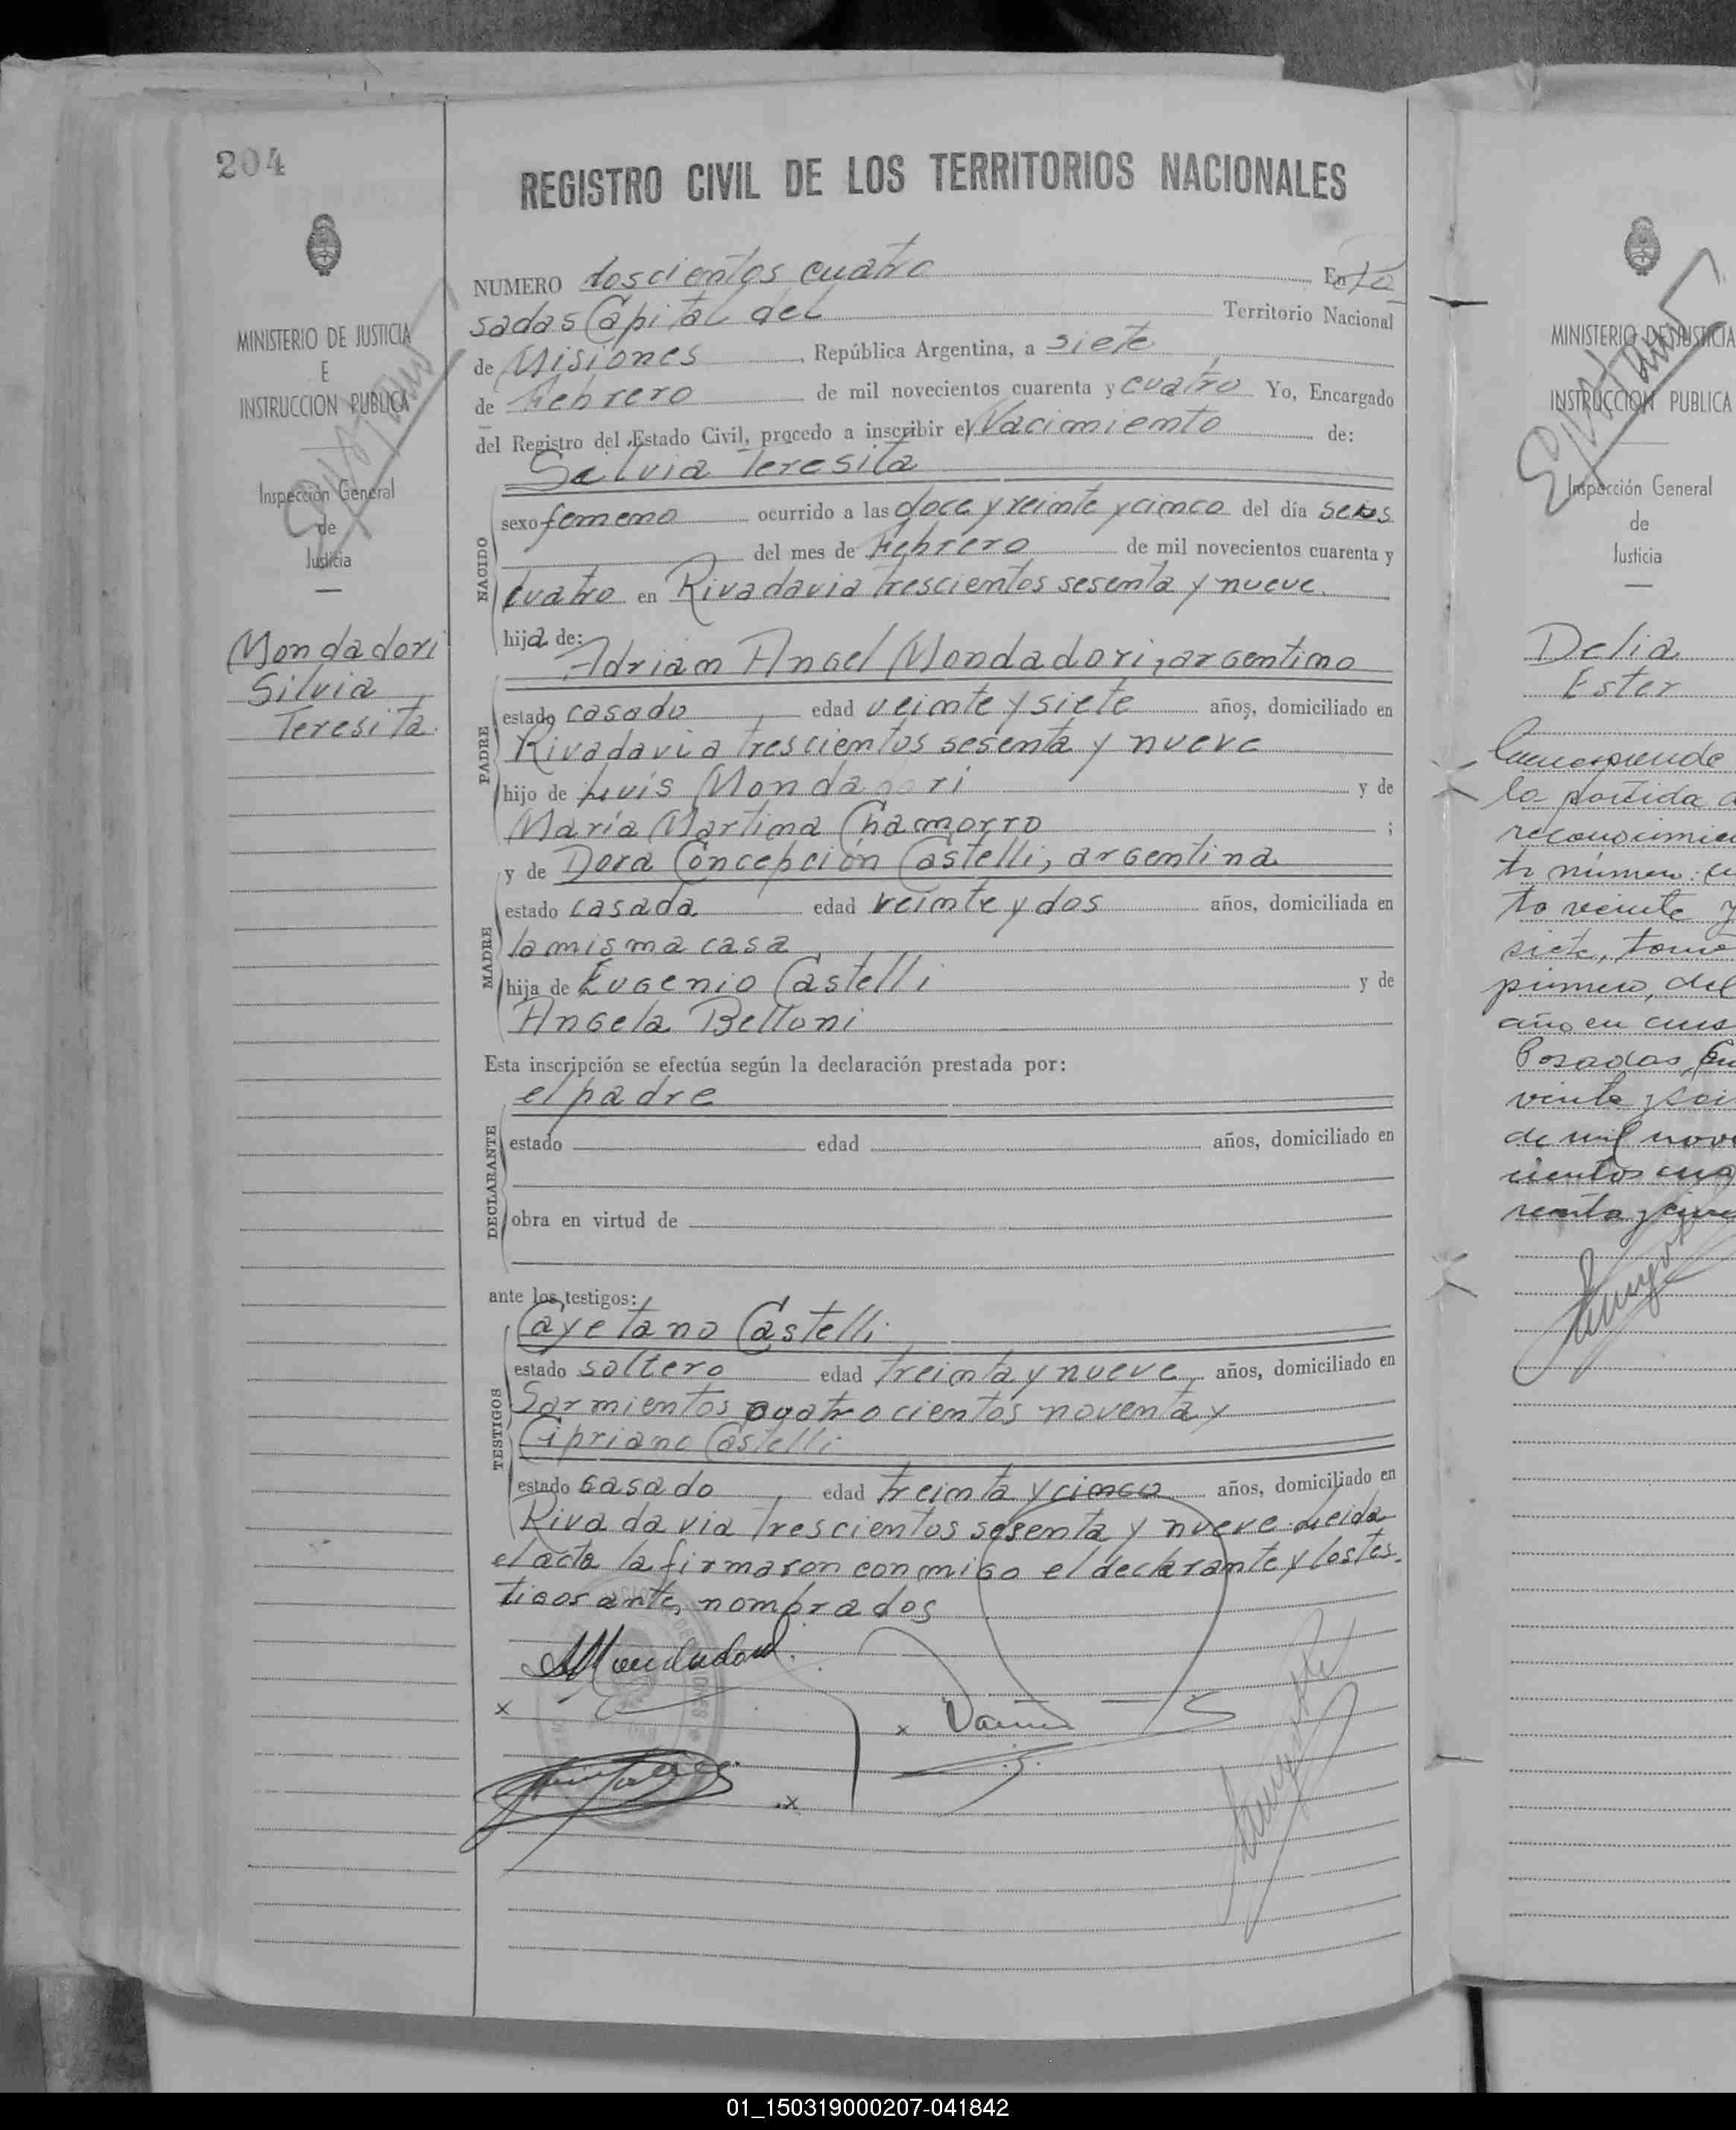 204
REGISTRO CIVIL DE LOS TERRITORIOS NACIONALES
MINISTERIO DE JUSTICIA
E
INSTRUCCION PUBLICA
Inspección General
de
Justicia
Mondadori
Silvia
Teresita.
NUMERO doscientos cuatro En Po
sadas Capital del Territorio Nacional
de Misiones, República Argentina, a siete
de Febrero de mil novecientos cuarenta y cuatro Yo, Encargado
del Registro del Estado Civil, procedo a inscribir el Nacimiento de:
Silvia Teresita
NACIDO
sexo femeno ocurrido a las doce y veinte y cinco del día seis
del mes de Febrero de mil novecientos cuarenta y
cuatro en Rivadavia trescientos sesenta y nueve.
hija de:
Adrian Angel Mondadori, argentino
PADRE
estado casado edad veinte y siete años, domiciliado en
Rivadavia trescientos sesenta y nueve
hijo de Luis Mondadori y de
María Martina Chamorro ;
y de Dora Concepción Castelli, argentina
MADRE
estado casada edad veinte y dos años, domiciliada en
la misma casa
hija de Eugenio Castelli y de
Angela Belloni
Esta inscripción se efectúa según la declaración prestada por:
el padre
DECLARANTE
estado edad años, domiciliado en
obra en virtud de
ante los testigos:
Cayetano Castelli
TESTIGOS
estado soltero edad treinta y nueve años, domiciliado en
Sarmientos cuatrocientos noventa y
Cipriano Castelli
estado casado edad treinta y cinco años, domiciliado en
Rivadavia trescientos sesenta y nueve. Leida
el acta la firmaron conmigo el declarante y los tes-
tigos antes nombrados
AMondadori.
x
x
x
MINISTERIO DE JUSTICIA
INSTRUCCION PUBLICA
Inspección General
de
Justicia
Delia
Ester
la partida
to veinte y
siete, tomo
primero, del
año en curs
Posadas,
veinte y sei
de mil nove
cientos cua
renta y cinc
01_150319000207-041842